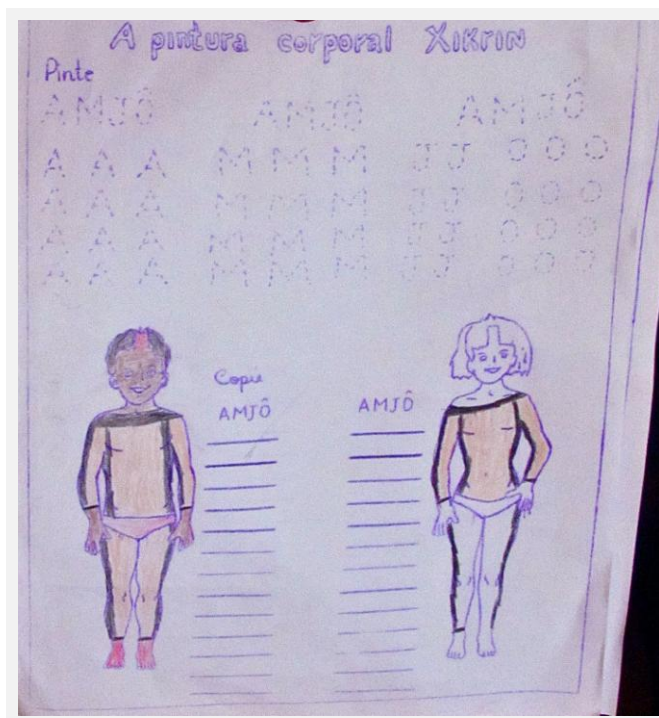 A pintura corporal XIKRIN
Pinte
AMJÔ AMJÔ AMJÔ
A A A M M M J J O O O
A A A M M M J J O O O
A A A M M M J J O O O
A A A M M M J J O O O
Copie
AMJÔ AMJÔ